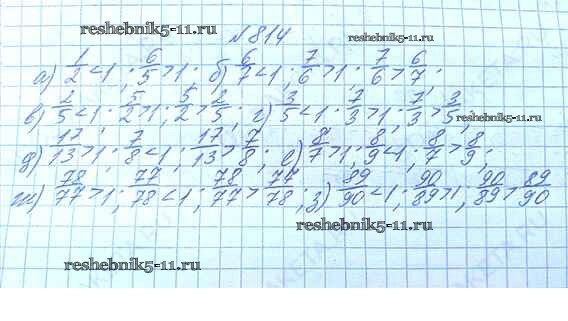 reshebnik5-11.ru
№ 814
reshebnik5-11.ru
а) 1/2 < 1 ; 6/5 > 1 ; б) 6/7 < 1 ; 7/6 > 1 ; 7/6 > 6/7 ;
в) 2/5 < 1 ; 5/2 > 1 ; 5/2 > 2/5 ; г) 3/5 < 1 ; 7/3 > 1 ; 7/3 > 3/5 ;
д) 17/13 > 1 ; 7/8 < 1 ; 17/13 > 7/8 ; е) 8/7 > 1 ; 8/9 < 1 ; 8/7 > 8/9 ;
ж) 78/77 > 1 ; 77/78 < 1 ; 78/77 > 77/78 ; з) 89/90 < 1 ; 90/89 > 1 ; 90/89 > 89/90
reshebnik5-11.ru
reshebnik5-11.ru